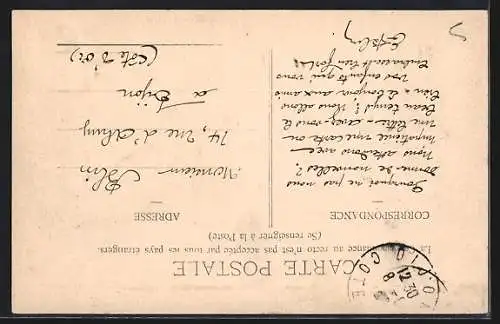 CARTE POSTALE
La Correspondance au recto n'est pas acceptée par tous les pays étrangers.
(Se renseigner à la Poste)
CORRESPONDANCE
Pourquoi ne pas nous
donner de nouvelles ?
Nous attendons avec
impatience une carte ou
une lettre - avez-vous le
beau temps ? Nous allons
bien - le bonjour aux amis
Vos enfants qui vous
embrassent bien fort
ADRESSE
Monsieur
14, rue d'
à Dijon
(Côte d'Or)
5